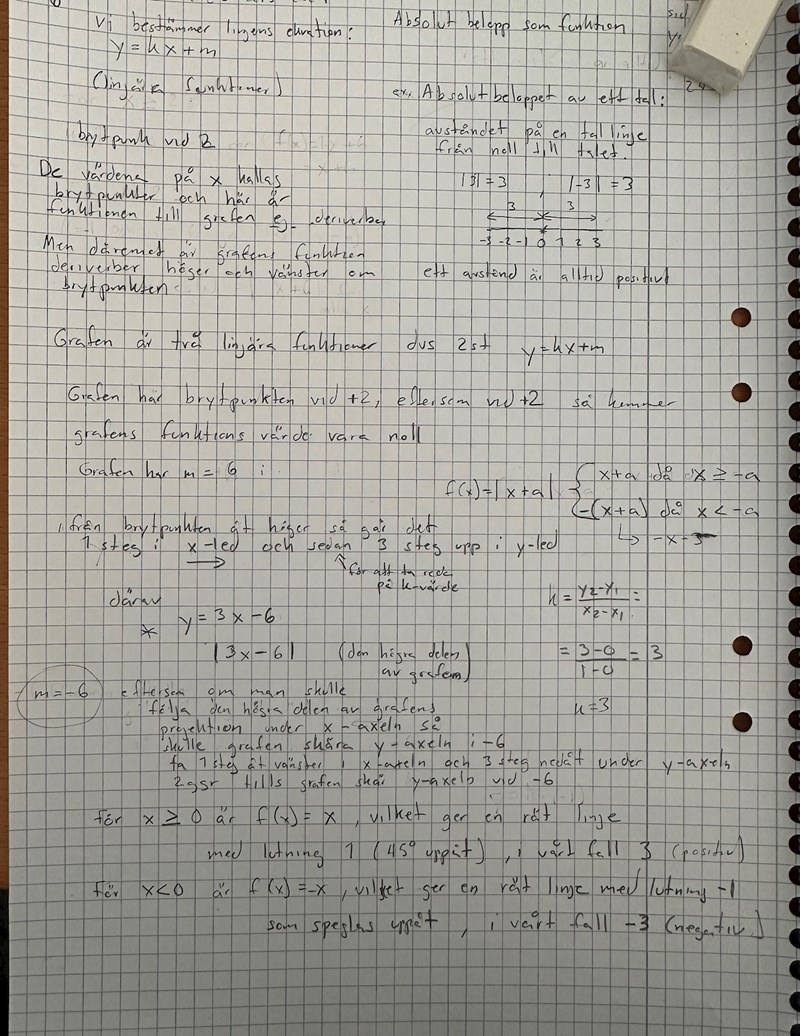 Vi bestämmer linjens ekvation:
y = kx + m
(linjära funktioner)
Absolut belopp som funktion
ex, Absolutbeloppet av ett tal:
avståndet på en tallinje
från noll till talet.
|3| = 3 , |-3| = 3
3 3
-3 -2 -1 0 1 2 3
ett avstånd är alltid positivt
brytpunk vid 2
De värdena på x kallas
brytpunkter och här är
funktionen till grafen ej deriverbar
Men däremot är grafens funktion
deriverber höger och vänster om
brytpunkten.
Grafen är två linjära funktioner dvs 2st y = kx + m
Grafen har brytpunkten vid +2, eftersom vid +2 så kommer
grafens funktions värde vara noll
Grafen har m = 6 i
f(x) = |x+a| { x+a då x ≥ -a
-(x+a) då x < -a
↳ -x-
från brytpunkten åt höger så går det
1 steg i x-led och sedan 3 steg upp i y-led
för att ta reda
på k-värde
k = y2-y1 / x2-x1 =
= 3-0 / 1-0 = 3
k = 3
därav
* y = 3x - 6
|3x - 6| (den högra delen
av grafen)
m = -6 eftersom om man skulle
följa den högra delen av grafens
projektion under x-axeln så
skulle grafen skära y-axeln i -6
ta 1 steg åt vänster i x-axeln och 3 steg nedåt under y-axeln
2ggr tills grafen skär y-axeln vid -6
för x ≥ 0 är f(x) = x , vilket ger en rät linje
med lutning 1 (45° uppåt) , i vårt fall 3 (positiv)
för x < 0 är f(x) = -x , vilket ger en rät linje med lutning -1
som speglas uppåt , i vårt fall -3 (negativ)